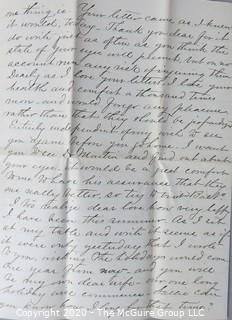 me thing is Your letter came as I knew
it would, today. Thank you dear for it
do write just as often as you think the
state of your eyes will permit, but on no
account run any risk of injuring them
Dearly as I love your letters I love your
health and comfort a thousand times
more and would forego any pleasure
rather than that they should be
entirely independent of my wish to see
you again before you go home. I want
you to see Dr Martin and find out about
your eyes. It would be a great comfort
to me to have his assurance that they
are really better, so try to
I too shall be at least as
I have been this summer. As I sit
at my table and write it seems as if
it were only yesterday that I wrote
to you, wishing the holidays would come
One year from now and you will
be my own dear wife our long
holiday will commence
you
Copyright © 2020 - The McGuire Group LLC